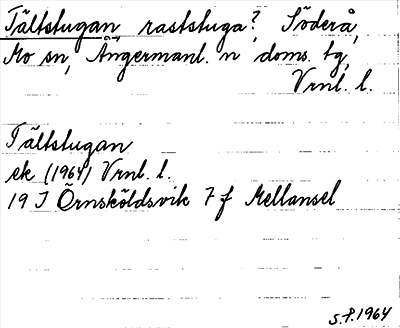 Tältstugan raststuga? Söderå,
Mo sn, Ångermanl. n doms. tg,
Vrnl. l.
Tältstugan
ek (1964) Vrnl. l.
19 I Örnsköldsvik 7 f Mellansel
S.P. 1964